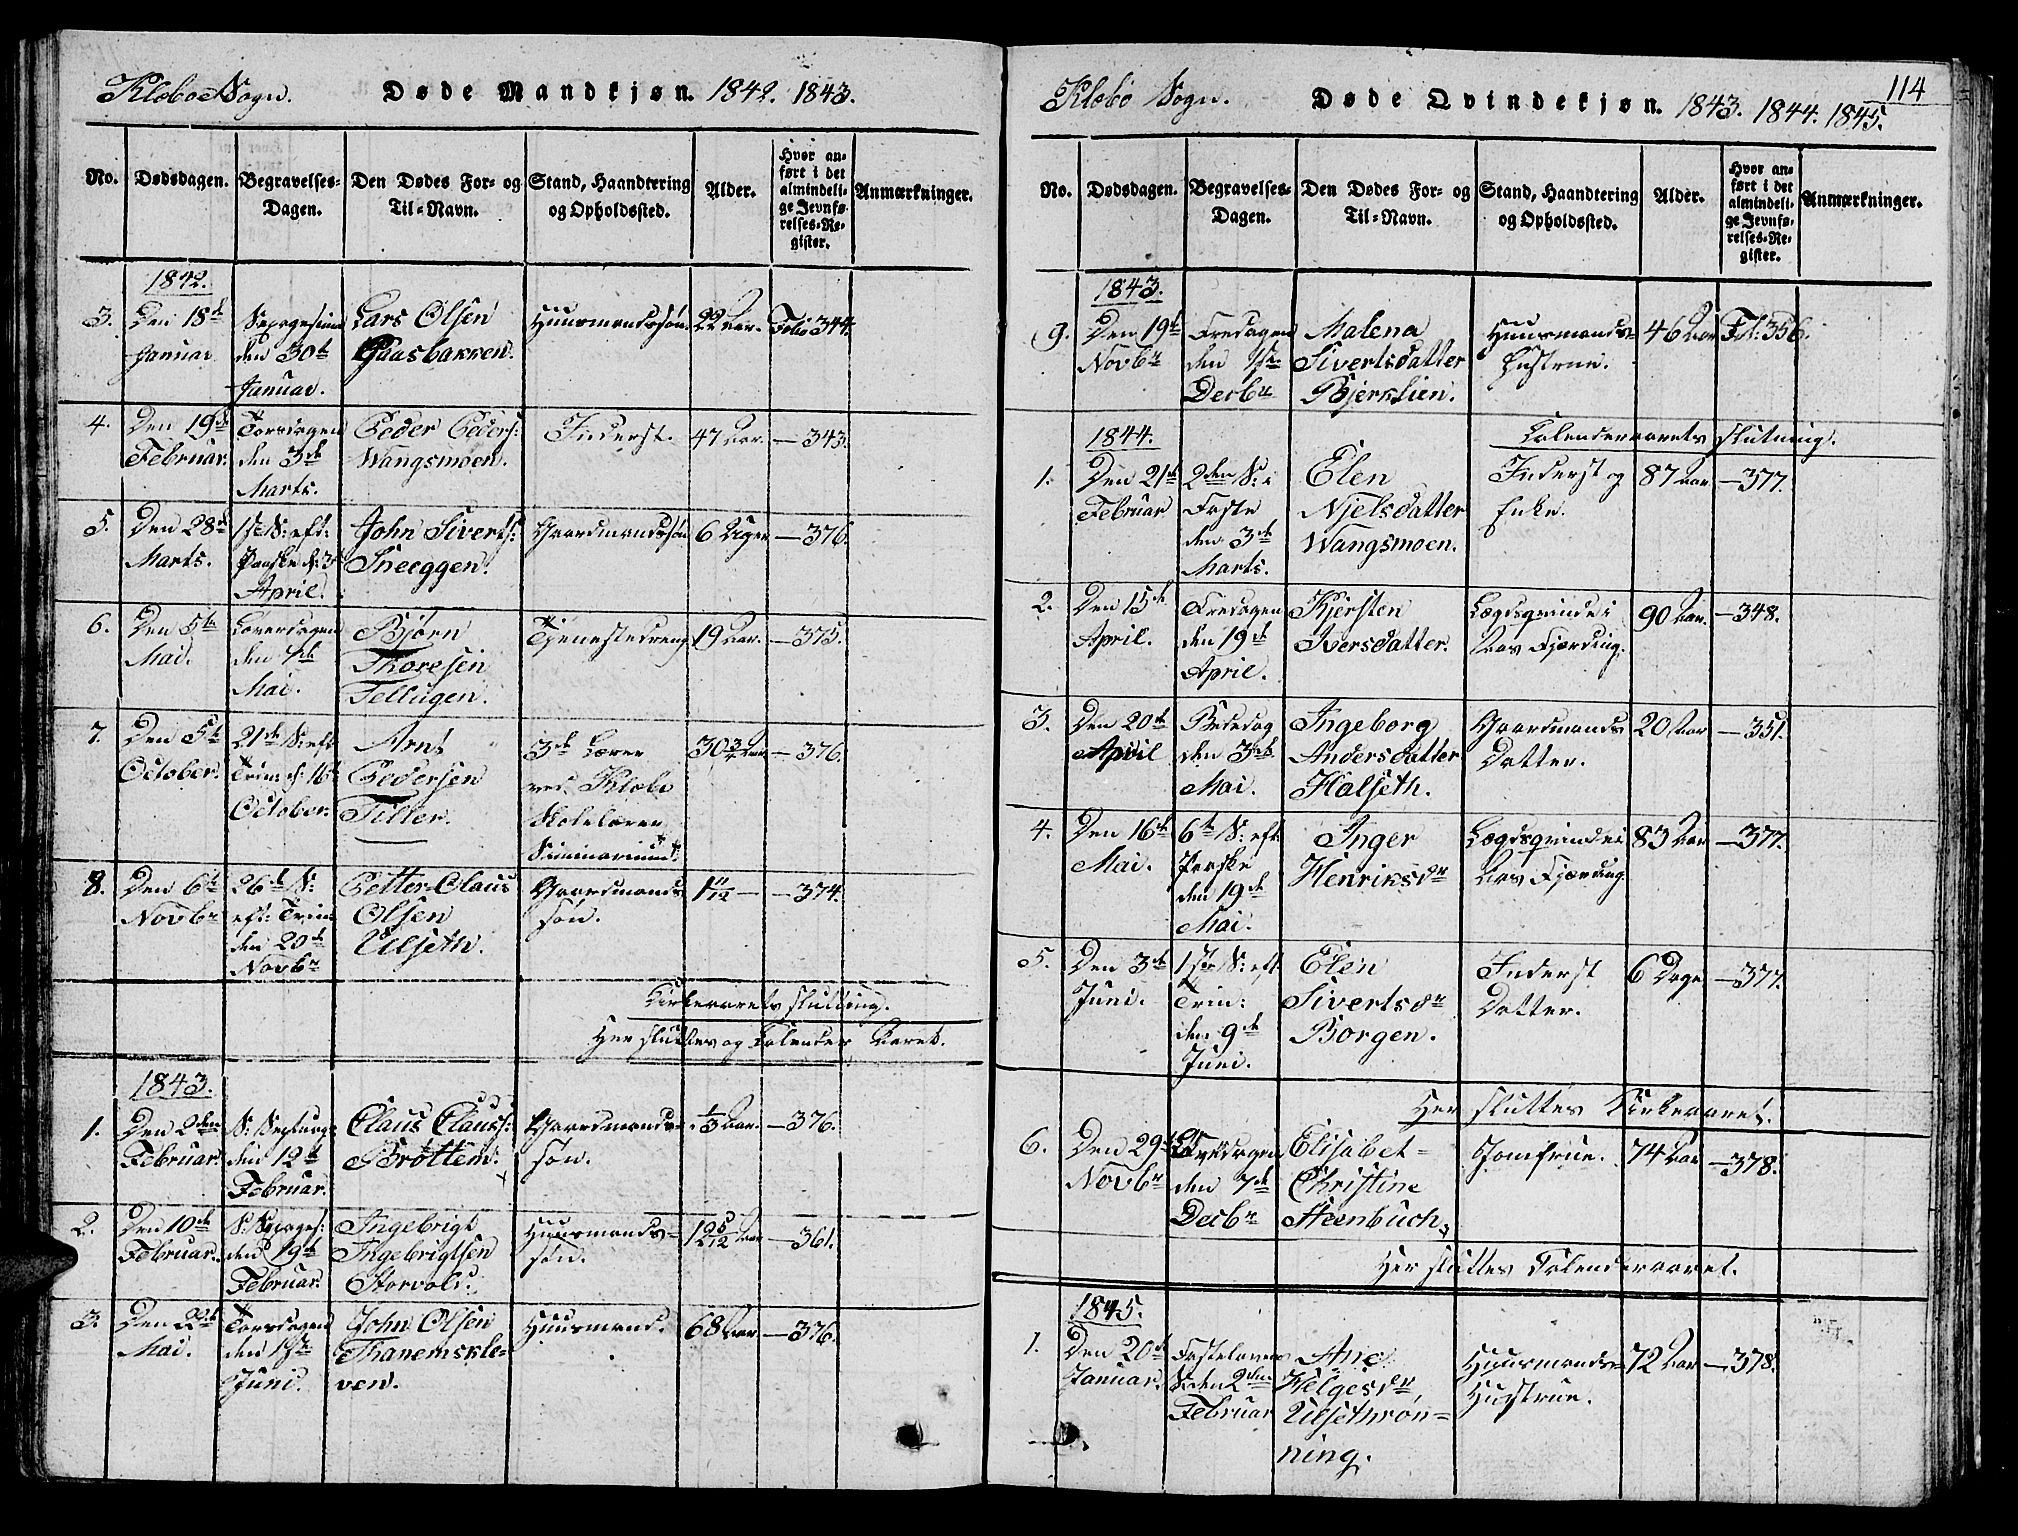 Klæbo Sogn. Døde Mandkjøn. 1842. 1843.
No. Dødsdagen. Begravelses-Dagen. Den Dødes For- og Til-Navn. Stand, Haandtering og Opholdssted. Alder. Hvor anført i det almindelige Jevnførelses-Register. Anmærkninger.
1842.
3. Den 18de Januar Sexagesima den 30te Januar. Lars Olsen Gaasbakken. Huusmandssøn 22 Aar. Folio 344.
4. Den 19de Februar. Torsdagen den 3de Marts. Peder Peders: Wangsmoen. Inderst. 47 Aar. — 343.
5. Den 28de Marts. 1ste S: eft: Paaske d: 3de April. John Siverts: Sneeggen. Gaardmandssøn 6 Uger — 376.
6. Den 5te Mai. Løverdagen den 7de Mai. Bjørn Thoresen Tellugen. Tjenestedreng 19 Aar. — 375.
7. Den 5te October. 21de S: eft Trin: d: 16de October. Arnt Pedersen Tiller. 3de Lærer ved Klæbo Skolelærer Seminarium. 30 3/4 Aar — 376.
8. Den 6te Novbr 26de S: eft: Trin: den 20de Novbr Petter Claus Olsen Ulseth. Gaardmands søn. 1 11/12 — — 374.
Kirkeaarets slutning.
Her sluttes og Calender Aaret.
1843.
1. Den 2den Februar. S: Septuag: den 12te Februar. Claus Clauss: Brøttem. Gaardmands-søn. 1/3 Aar. — 376.
2. Den 10de Februar. S: Sexages: den 19de Februar. Ingebrigt Ingebrigtsen Storvold. Huusmands-søn. 12 5/12 Aar — 361.
3. Den 22de Mai. Torsdagen den 1ste Juni. John Olsen Thanemskleven. Huusmand. 68 Aar — 376.
Klæbo Sogn. Døde Qvindekjøn. 1843. 1844. 1845. 114
No. Dødsdagen. Begravelses-Dagen. Den Dødes For- og Til-Navn. Stand, Haandtering og Opholdssted. Alder. Hvor anført i det almindelige Jevnførelses-Register. Anmærkninger.
1843.
9. Den 19de Novbr Fredagen den 1ste Decbr Malena Sivertsdatter Bjerklien. Huusmands-Hustrue. 46 Aar Fol: 356.
Calenderaarets slutning.
1844.
1. Den 21de Februar 2den S: i Faste den 3de Marts. Elen Njelsdatter Wangsmoen. Inderst og Enke. 87 Aar — 377.
2. Den 15de April. Fredagen den 19de April. Kjersten Iversdatter. Lægdsqvinde i Fjerding. 90 Aar. — 348.
3. Den 20de April Bededag den 3die Mai. Ingeborg Andersdatter Halseth. Gaardmands Datter. 20 Aar — 351.
4. Den 16de Mai. 6te S: eft Paaske den 19de Mai. Inger Henriksdr Lægdsqvinde i Fjerding. 83 Aar — 377.
5. Den 3de Juni. 1ste S: eft Trin: den 9de Juni. Elen Sivertsdr Borgen. Inderst Datter. 6 Dage — 377.
Her sluttes Kirkeaaret.
6. Den 29de Novbr Løverdagen den 7de Decbr Elisabet Christine Steenbuch. Jomfrue. 74 Aar — 378.
Her sluttes Calenderaaret.
1845.
1. Den 20de Januar. Fastelavens S: den 2den Februar Ane Helgesdr Ulsethrønning. Huusmands-Hustrue. 72 Aar — 378.